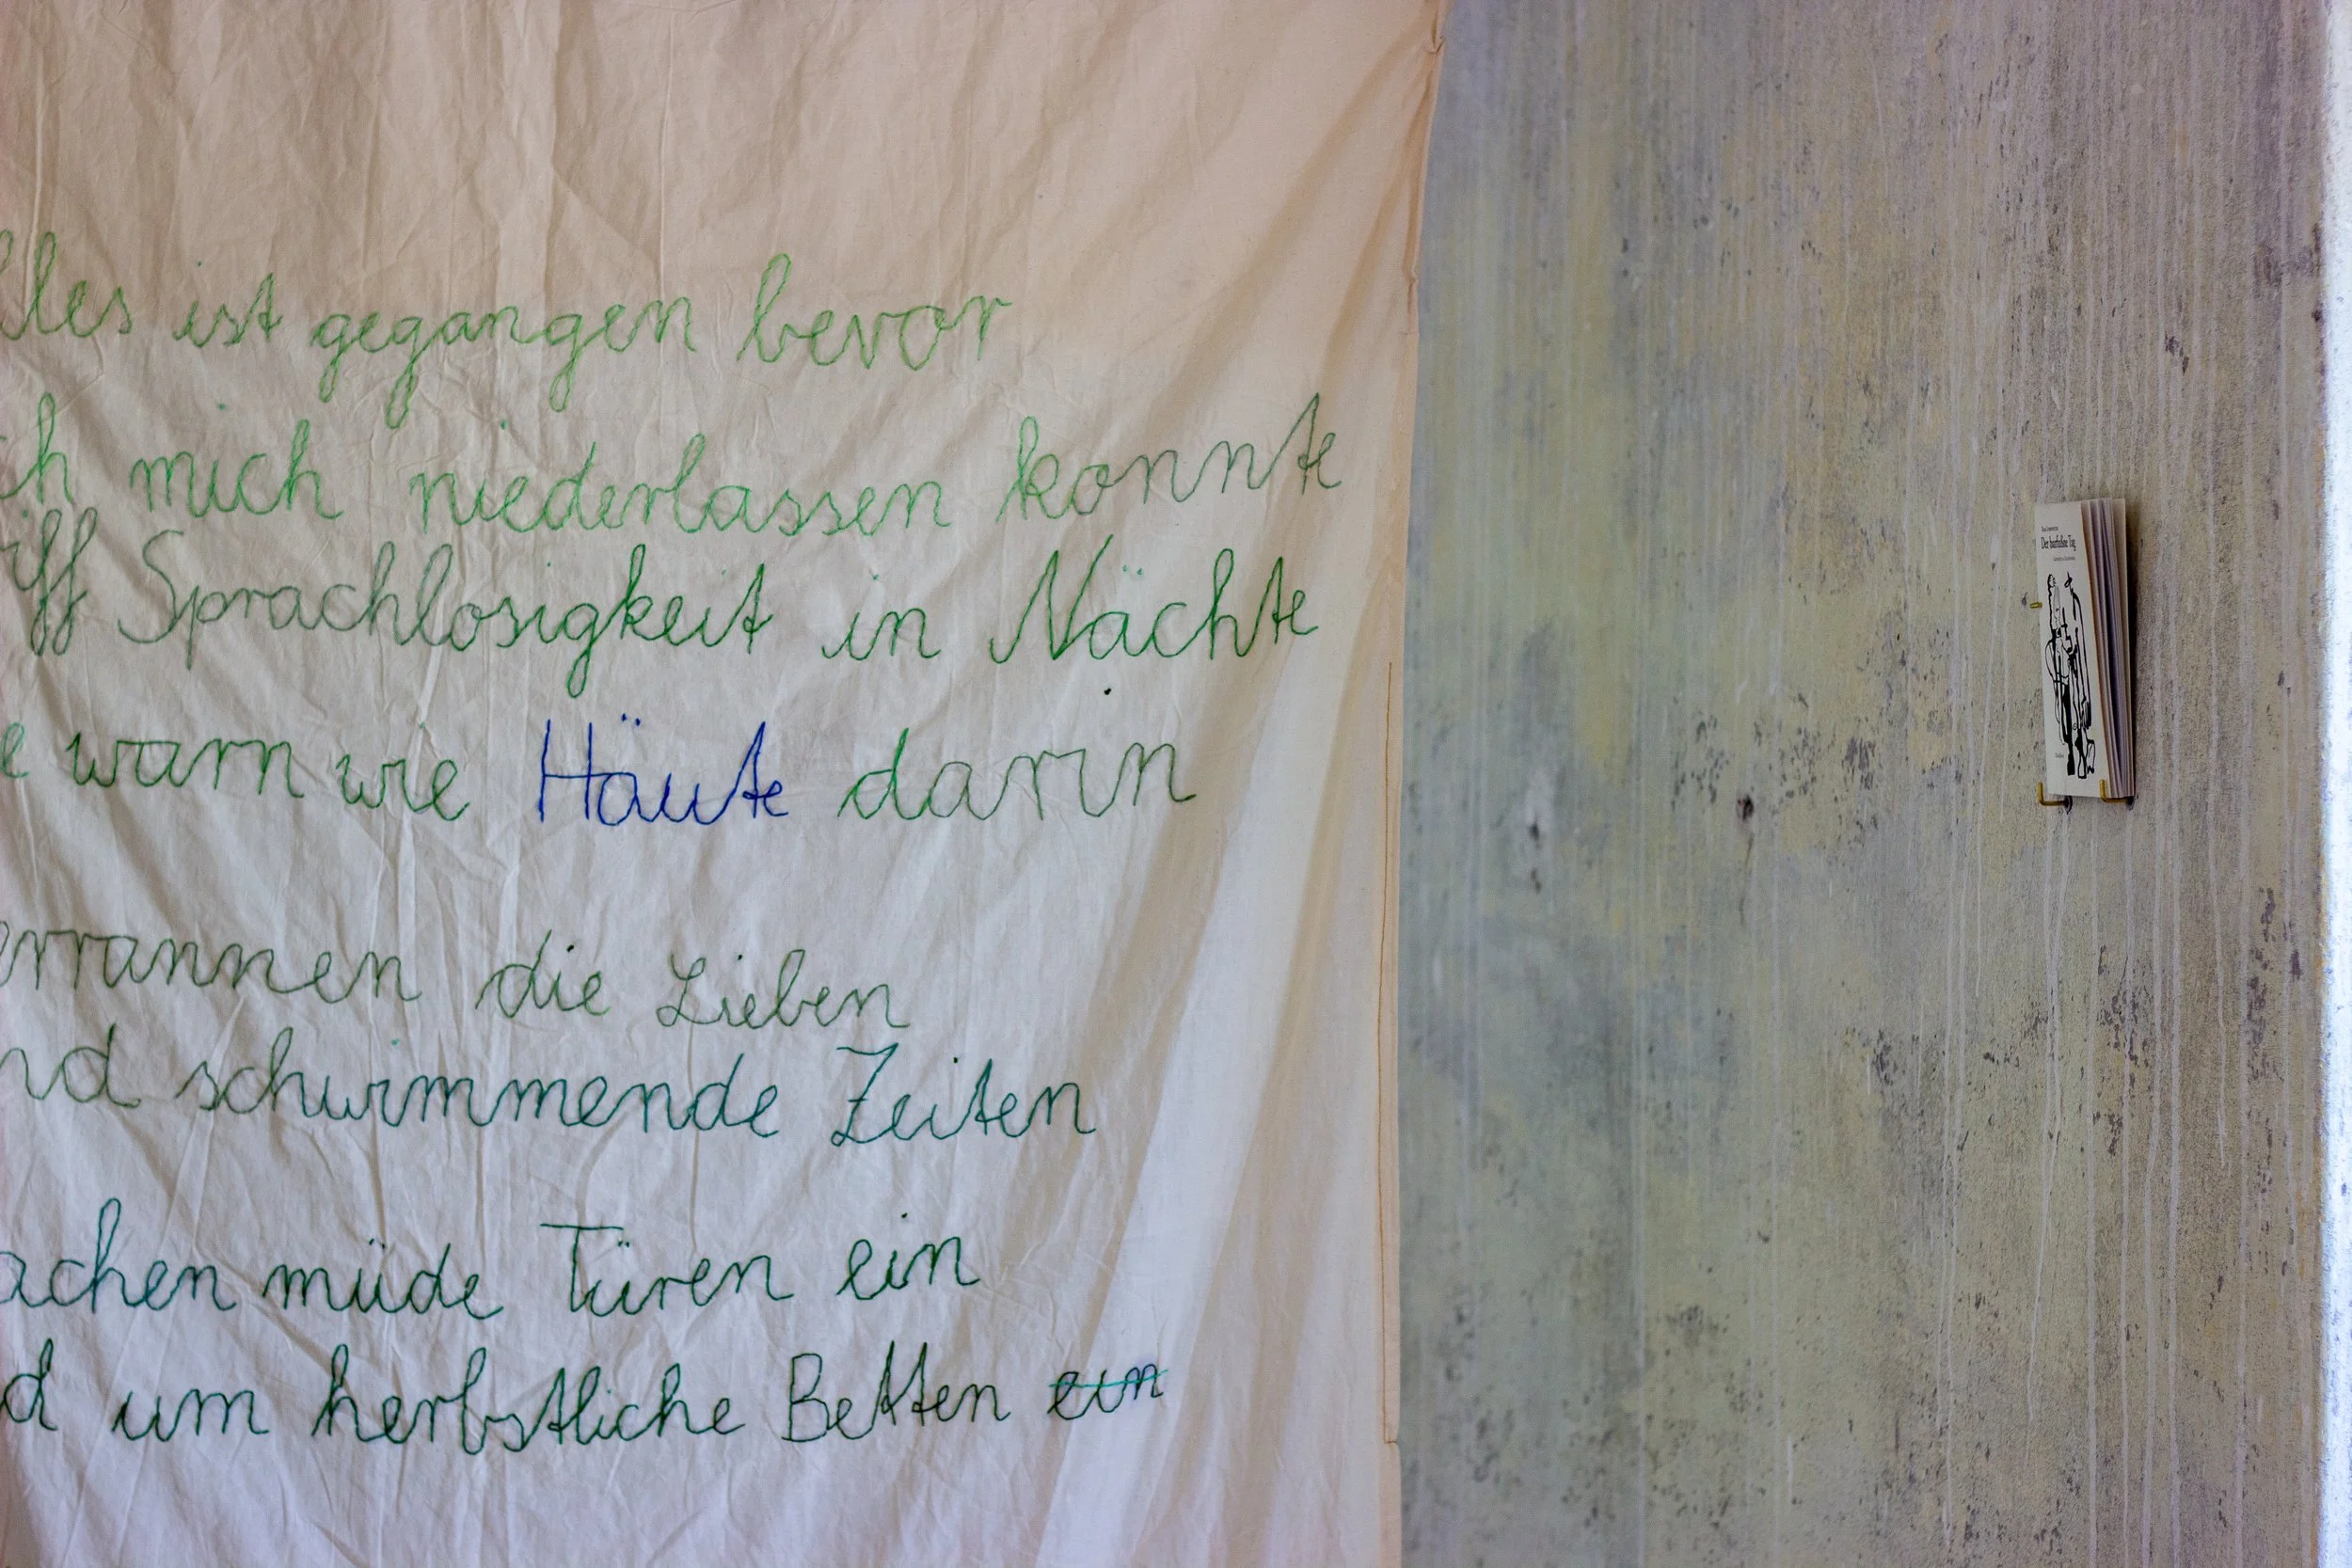 lles ist gegangen bevor
ch mich niederlassen konnte
iff Sprachlosigkeit in Nächte
e warn wie Häute darin
errannen die Lieben
nd schwimmende Zeiten
achen müde Türen ein
d um herbstliche Betten ein
Der barfüßne Tag